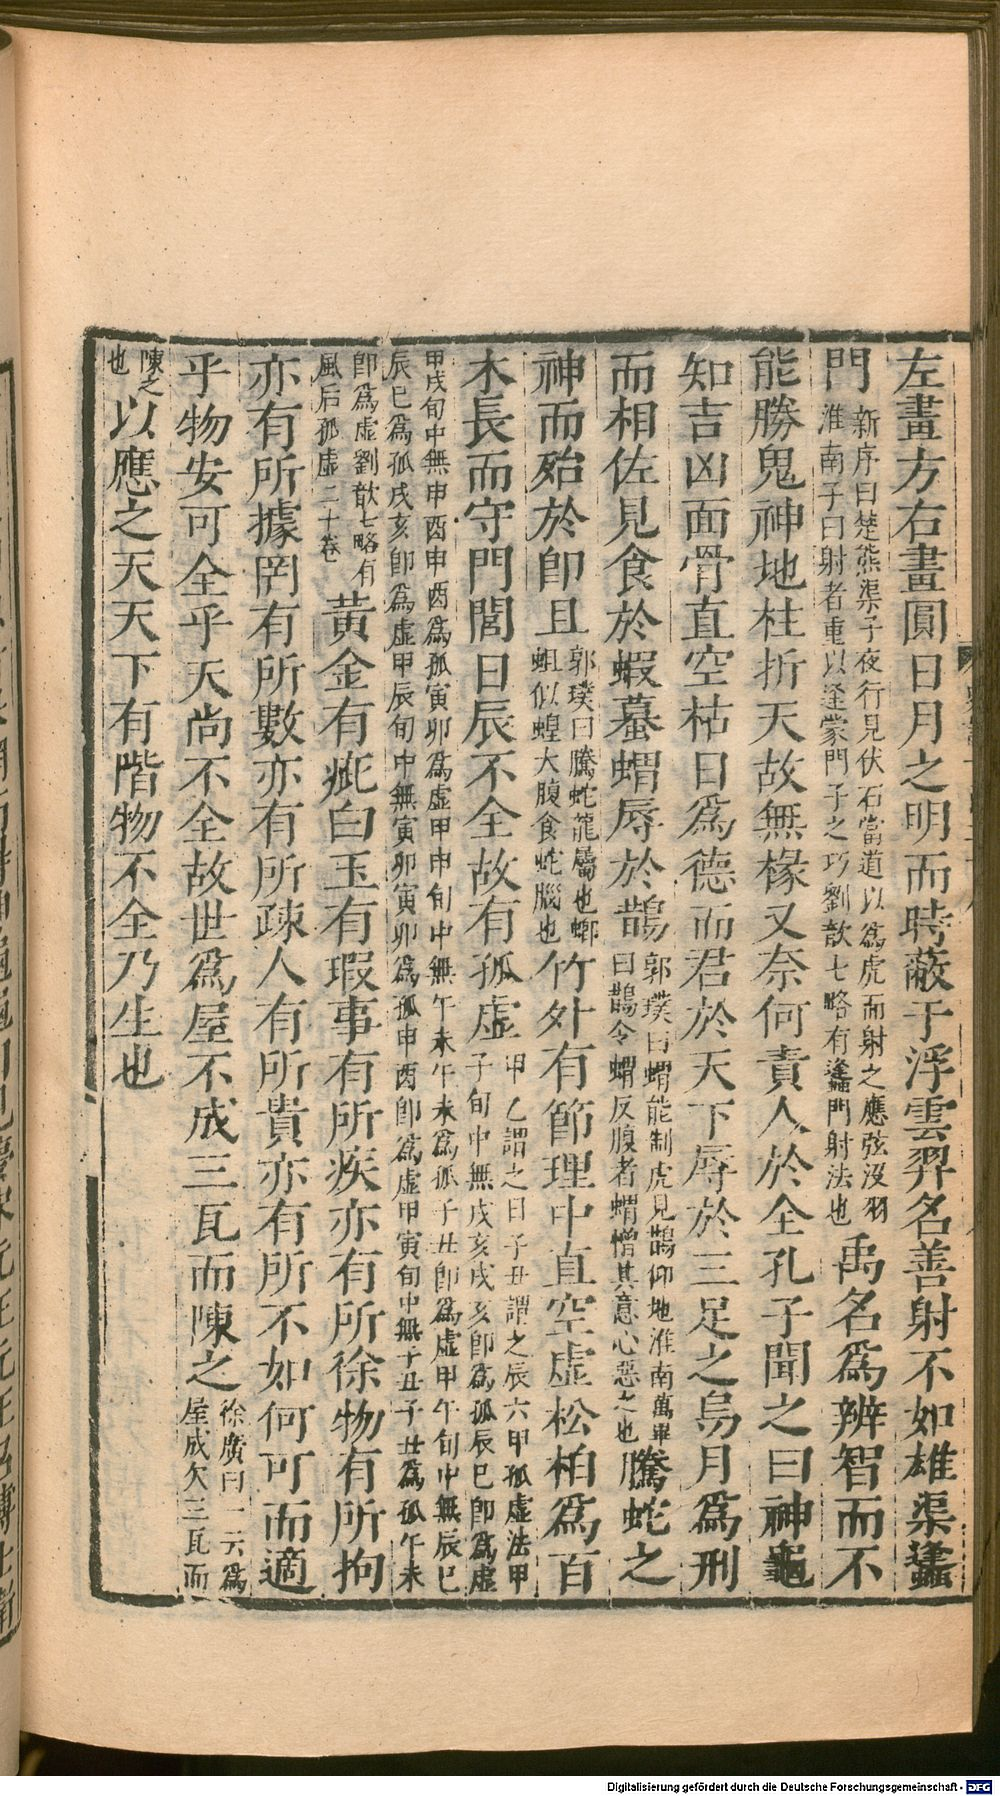 左畫方右畫圓日月之明而時蔽于浮雲羿名善射不如雄渠蠭
門新序曰楚熊渠子夜行見伏石當道以爲虎而射之應弦沒羽淮南子曰射者重以逢蒙門子之巧劉歆七略有蠭門射法也禹名爲辨智而不
能勝鬼神地柱折天故無椽又奈何責人於全孔子聞之曰神龜
知吉凶而骨直空枯日爲德而君於天下辱於三足之烏月爲刑
而相佐見食於蝦蟇蝟辱於鵲郭璞曰蝟能制虎見鵲仰地淮南萬畢曰鵲令蝟反腹者蝟憎其意心惡之也騰蛇之
神而殆於卽且郭璞曰騰蛇龍屬也蝍蛆似蝗大腹食蛇腦也竹外有節理中直空虛松柏爲百
木長而守門閭日辰不全故有孤虛甲乙謂之日子丑謂之辰六甲孤虛法甲子旬中無戌亥戌亥卽爲孤辰巳卽爲虛
甲戌旬中無申酉申酉爲孤寅卯爲虛甲申旬中無午未午未爲孤子丑卽爲虛甲午旬中無辰巳辰巳爲孤戌亥卽爲虛甲辰旬中無寅卯寅卯爲孤申酉卽爲虛甲寅旬中無子丑子丑爲孤午未
卽爲虛劉歆七略有風后孤虛二十卷黃金有疵白玉有瑕事有所疾亦有所徐物有所拘
亦有所據罔有所數亦有所疎人有所貴亦有所不如何可而適
乎物安可全乎天尚不全故世爲屋不成三瓦而陳之徐廣曰一云爲屋成欠三瓦而
陳之也以應之天天下有階物不全乃生也
Digitalisierung gefördert durch die Deutsche Forschungsgemeinschaft - DFG